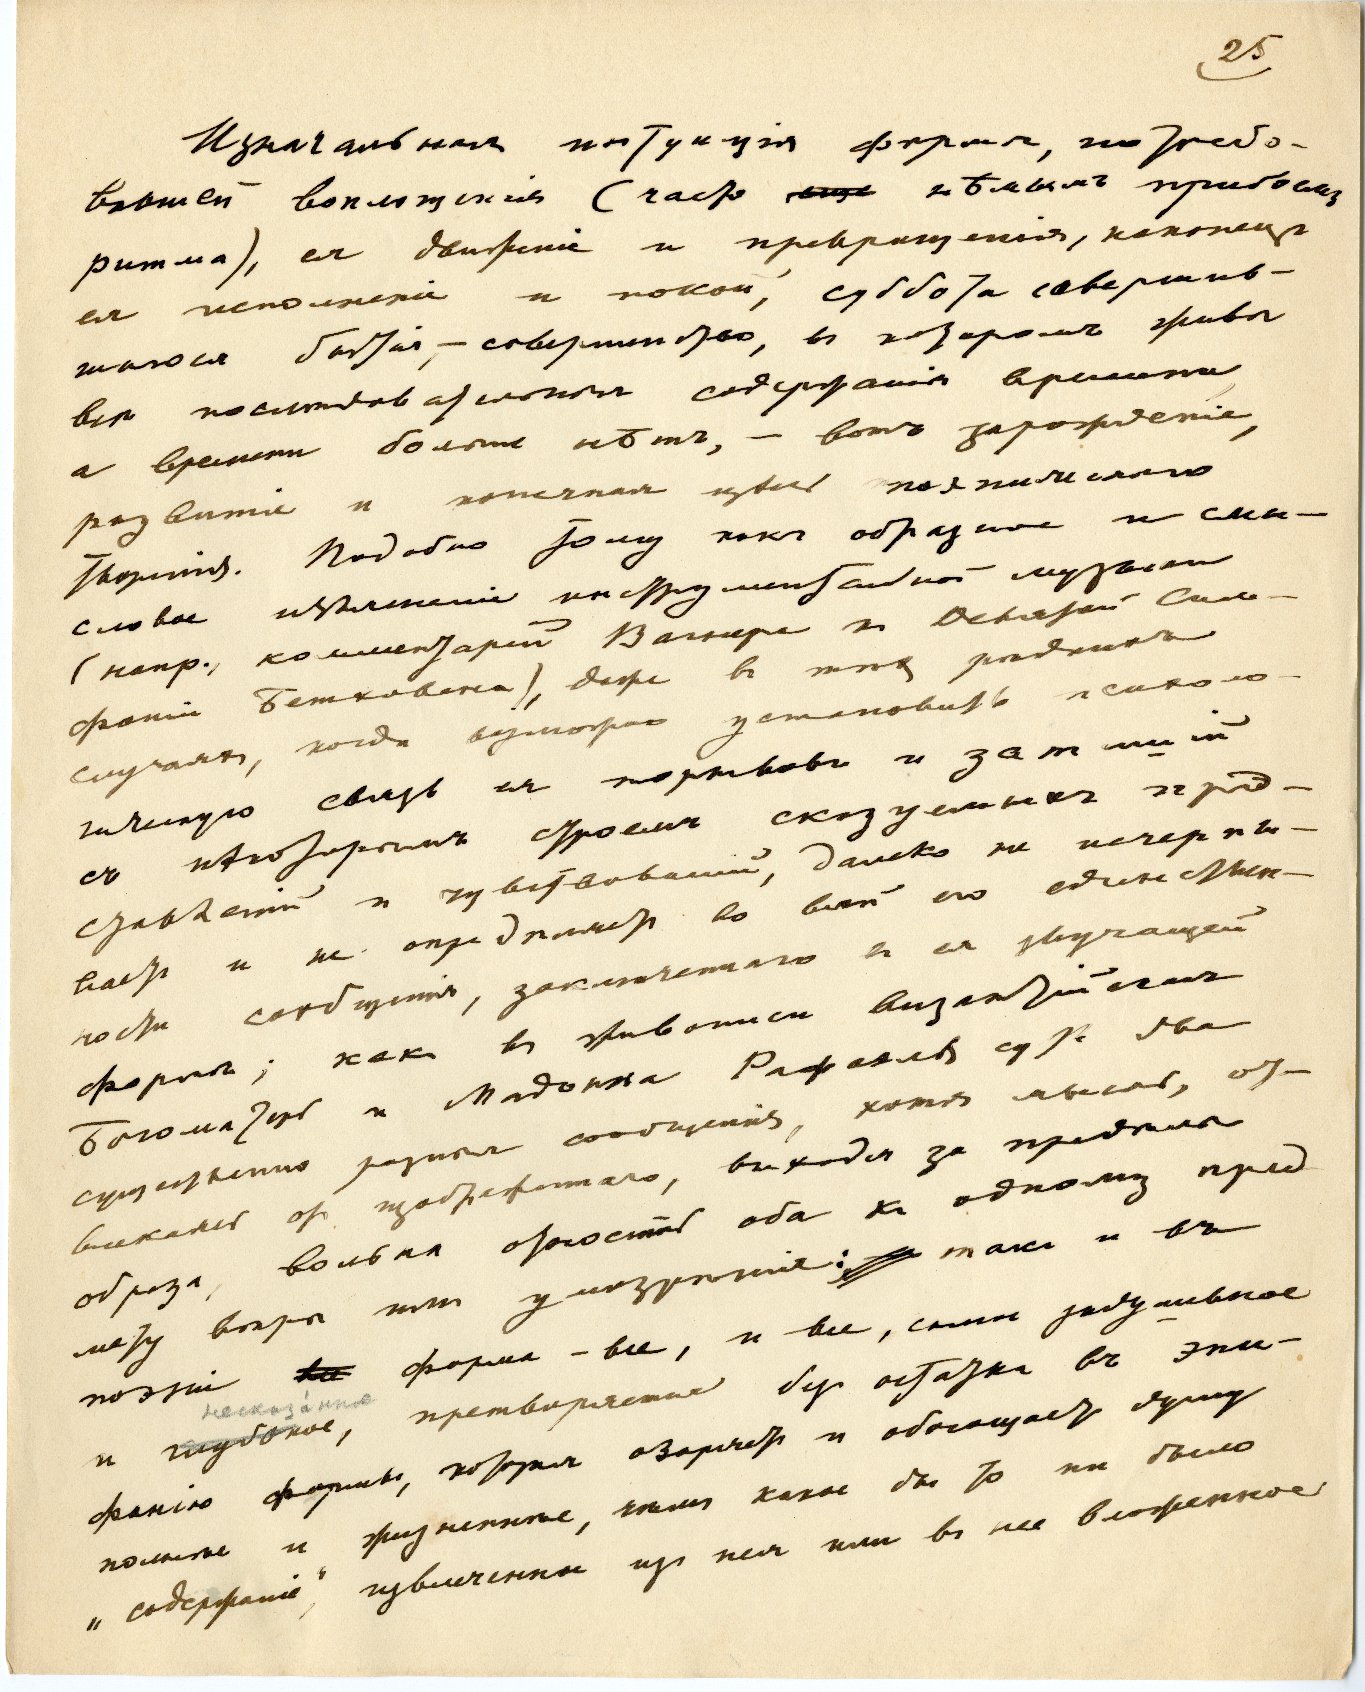 25
Изначальная интуиція формы, потребо-
вавшей воплощенія (часто еще нѣмымъ прибоемъ
ритма), ея движеніе и превращенія, наконецъ
ея исполненіе и покой, суббота совершив-
шагося бытія, — совершенство, въ которомъ живы
всѣ послѣдовательныя содержанія времени,
а времени больше нѣтъ, — вотъ зарожденіе,
развитіе и конечная цѣль поэтическаго
творенія. Подобно тому какъ образное и смы-
словое изъясненіе инструментальной музыки
(напр., комментарій Вагнера къ Девятой Сим-
фоніи Бетховена), даже въ тѣхъ рѣдкихъ
случаяхъ, когда возможно установить психоло-
гическую связь ея порывовъ и затишій
съ нѣкоторымъ строемъ сказуемыхъ пред-
ставленій и чувствованій, далеко не исчерпы-
ваетъ и не опредѣляетъ во всей его единствен-
ности сообщенія, заключеннаго въ ея звучащей
формѣ; какъ въ живописи византійская
Богоматерь и Мадонна Рафаэля суть два
существенно разныя сообщенія, хотя мысль, от-
влекаясь отъ изображеннаго, выходя за предѣлы
образа, вольна отнести оба къ одному пред-
мету вѣры или умозрѣнія: такъ и въ
поэзіи все форма — все, и все, самое задушевное
несказанное
и глубокое, претворяется безъ остатка въ эпи-
фанію формы, которая озаряетъ и обогащаетъ душу
полнѣе и жизненнѣе, чѣмъ какое бы то ни было
„содержаніе“, извлеченное изъ нея или въ нее вложенное